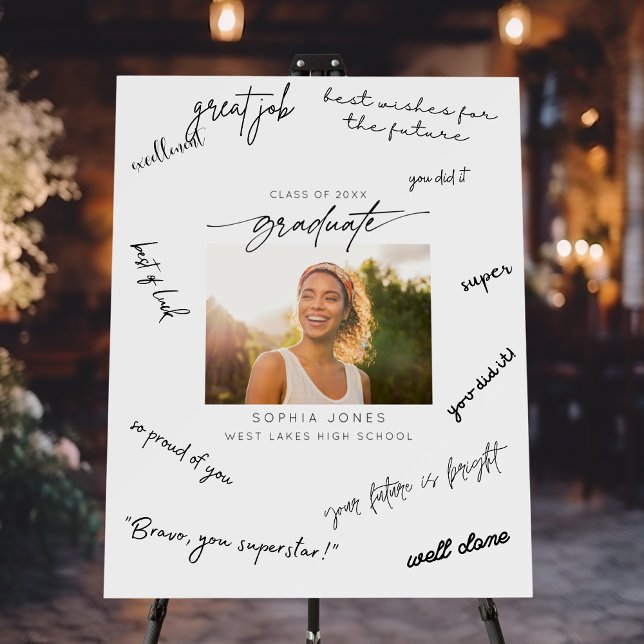 great job
best wishes for
the future
excellement
you did it
CLASS OF 20XX
graduate
best of luck
super
you did it!
SOPHIA JONES
WEST LAKES HIGH SCHOOL
so proud of you
your future is bright
"Bravo, you superstar!"
well done